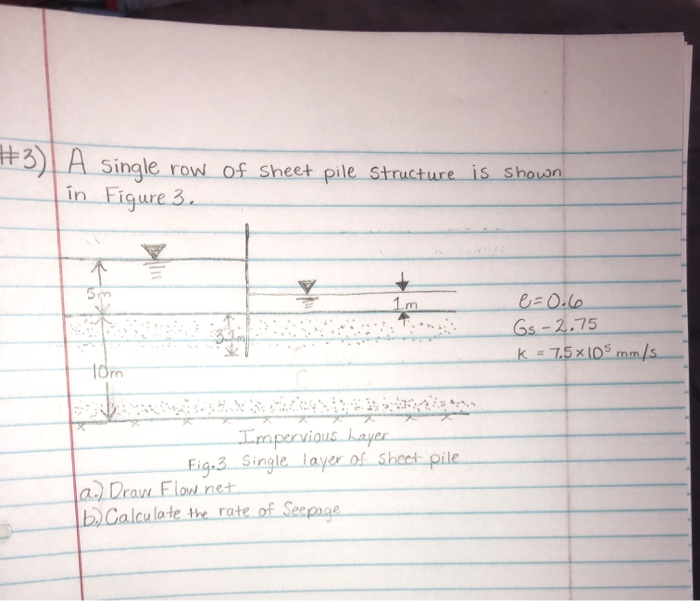 #3) A single row of sheet pile structure is shown
in Figure 3.
5m
1m
e=0.6
Gs-2.75
k = 7.5×10⁵ mm/s
10m
Impervious Layer
Fig.3 Single layer of sheet pile
a.) Draw Flow net
b.) Calculate the rate of Seepage